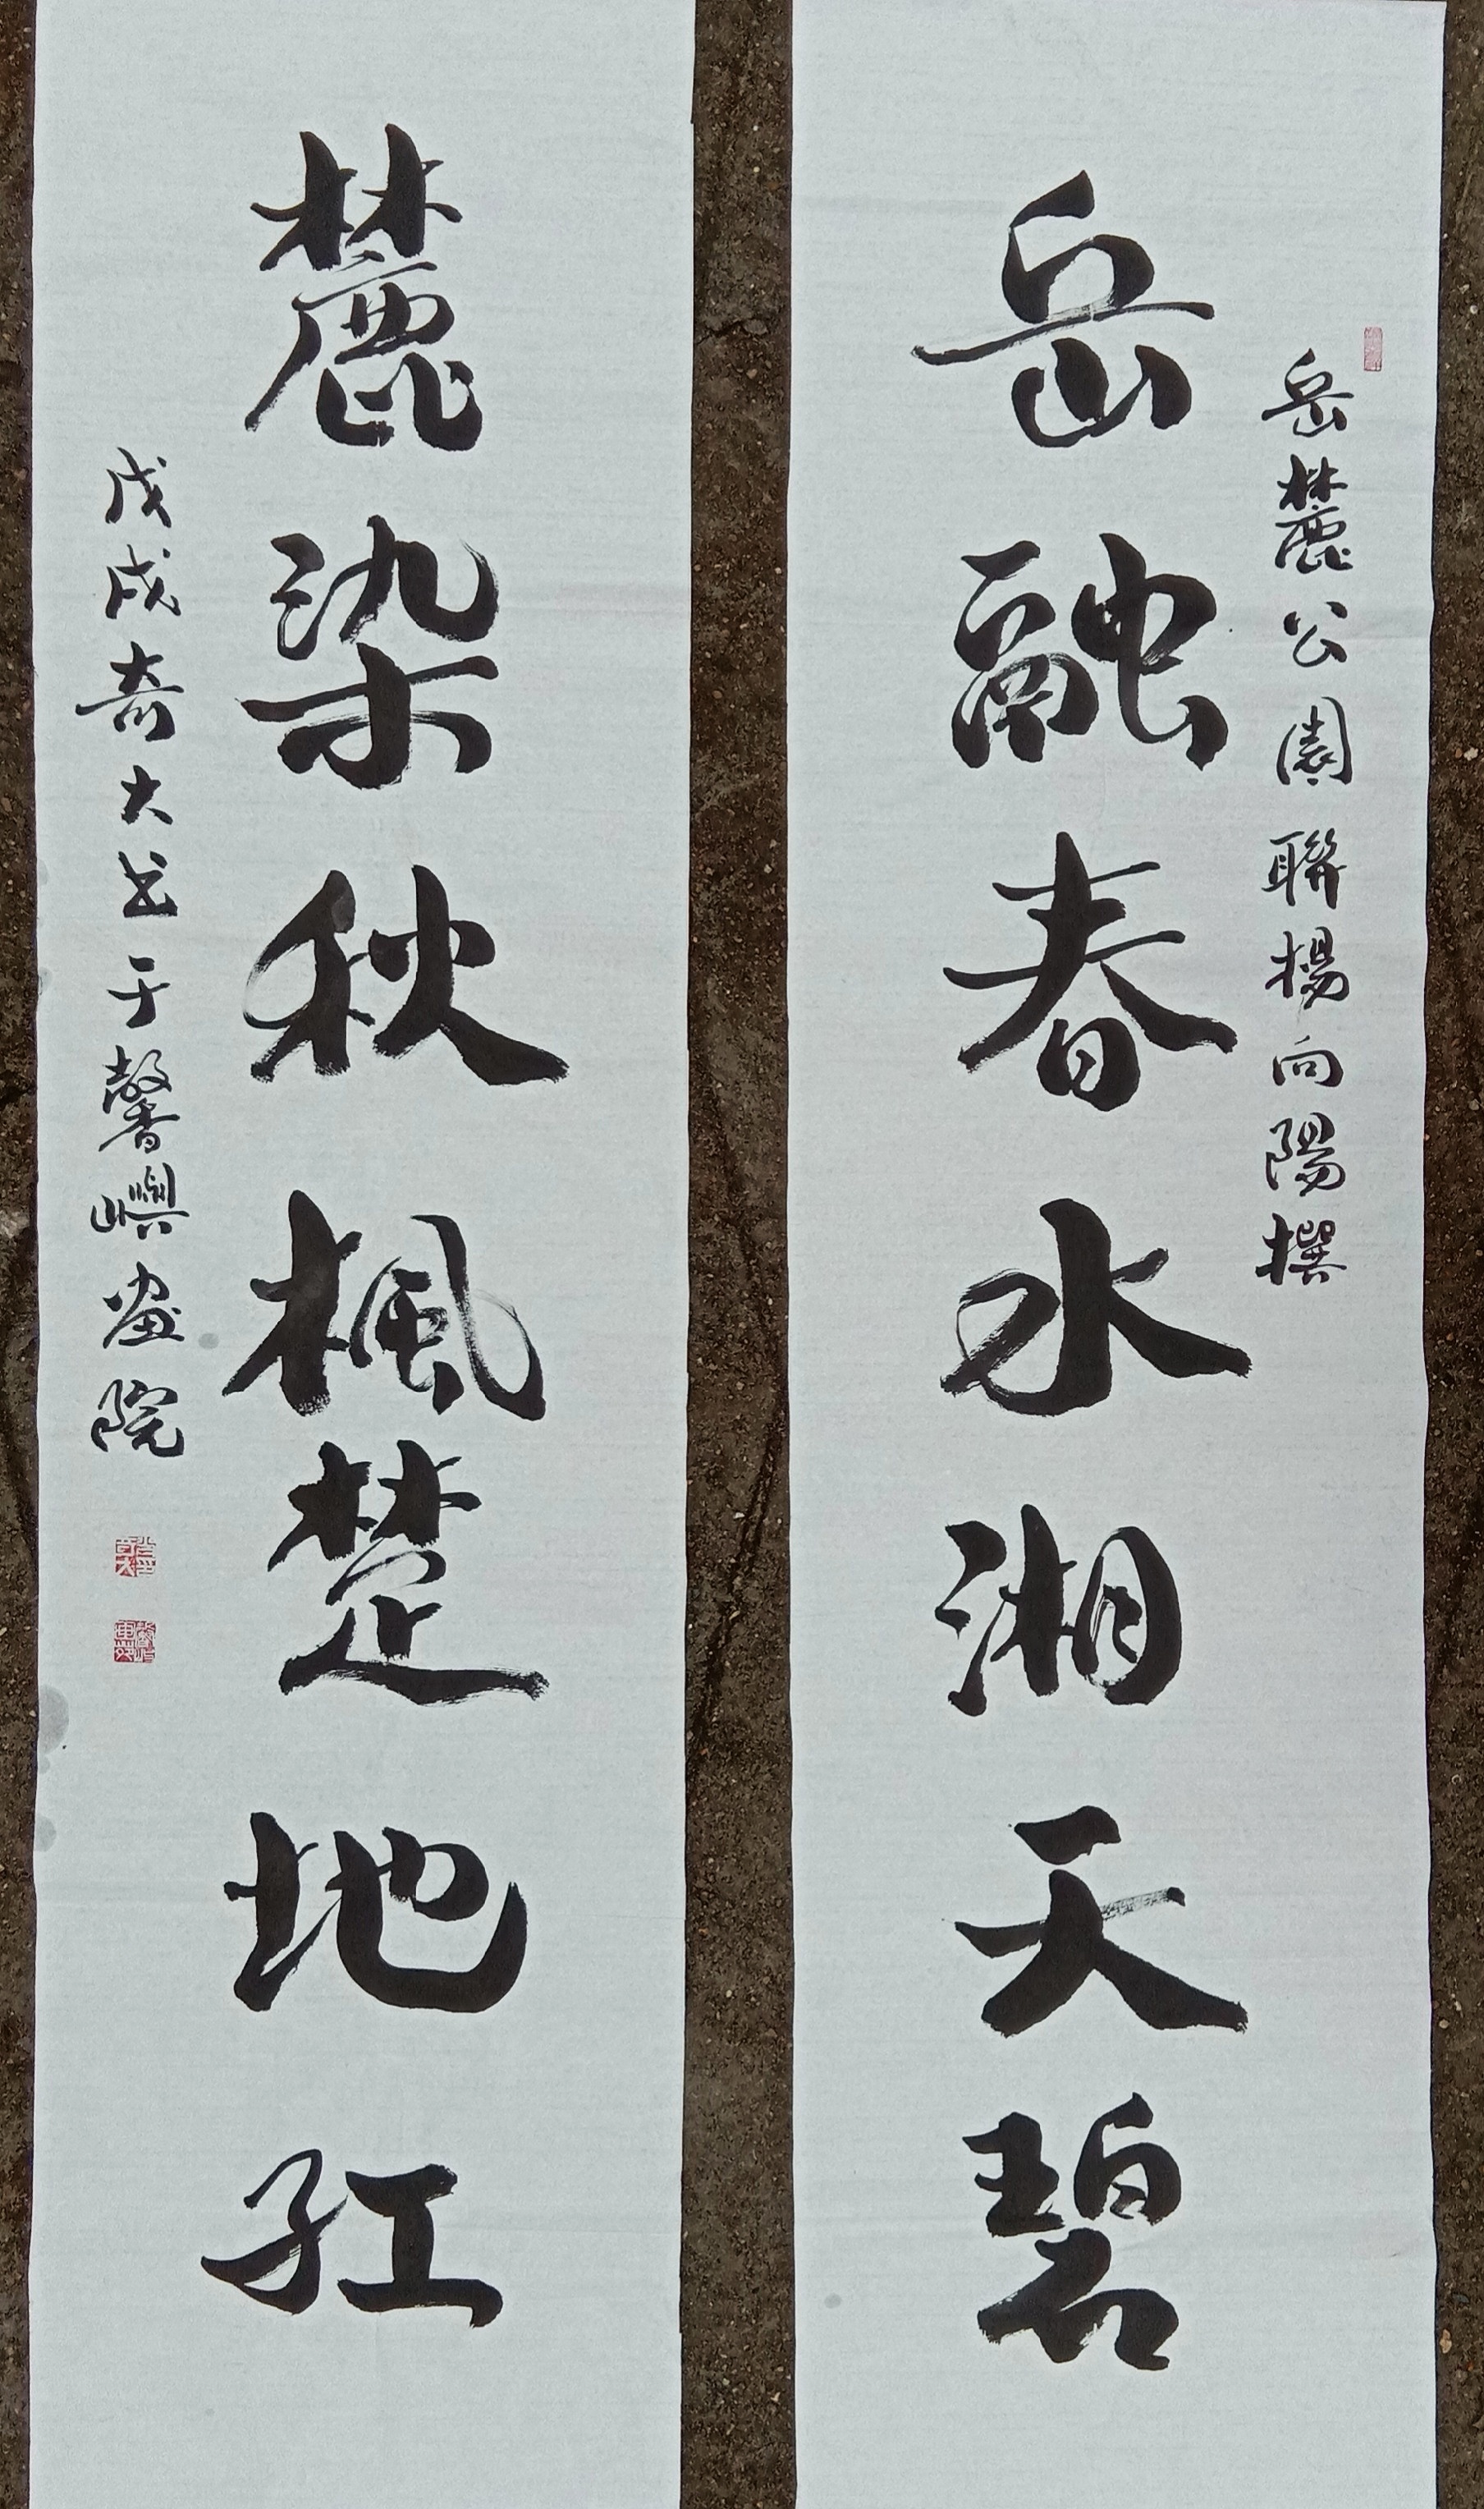 岳麓公園聯楊向陽撰
岳融春水湘天碧
麓染秋楓楚地紅
戊戌奇大书于馨嶼畫院